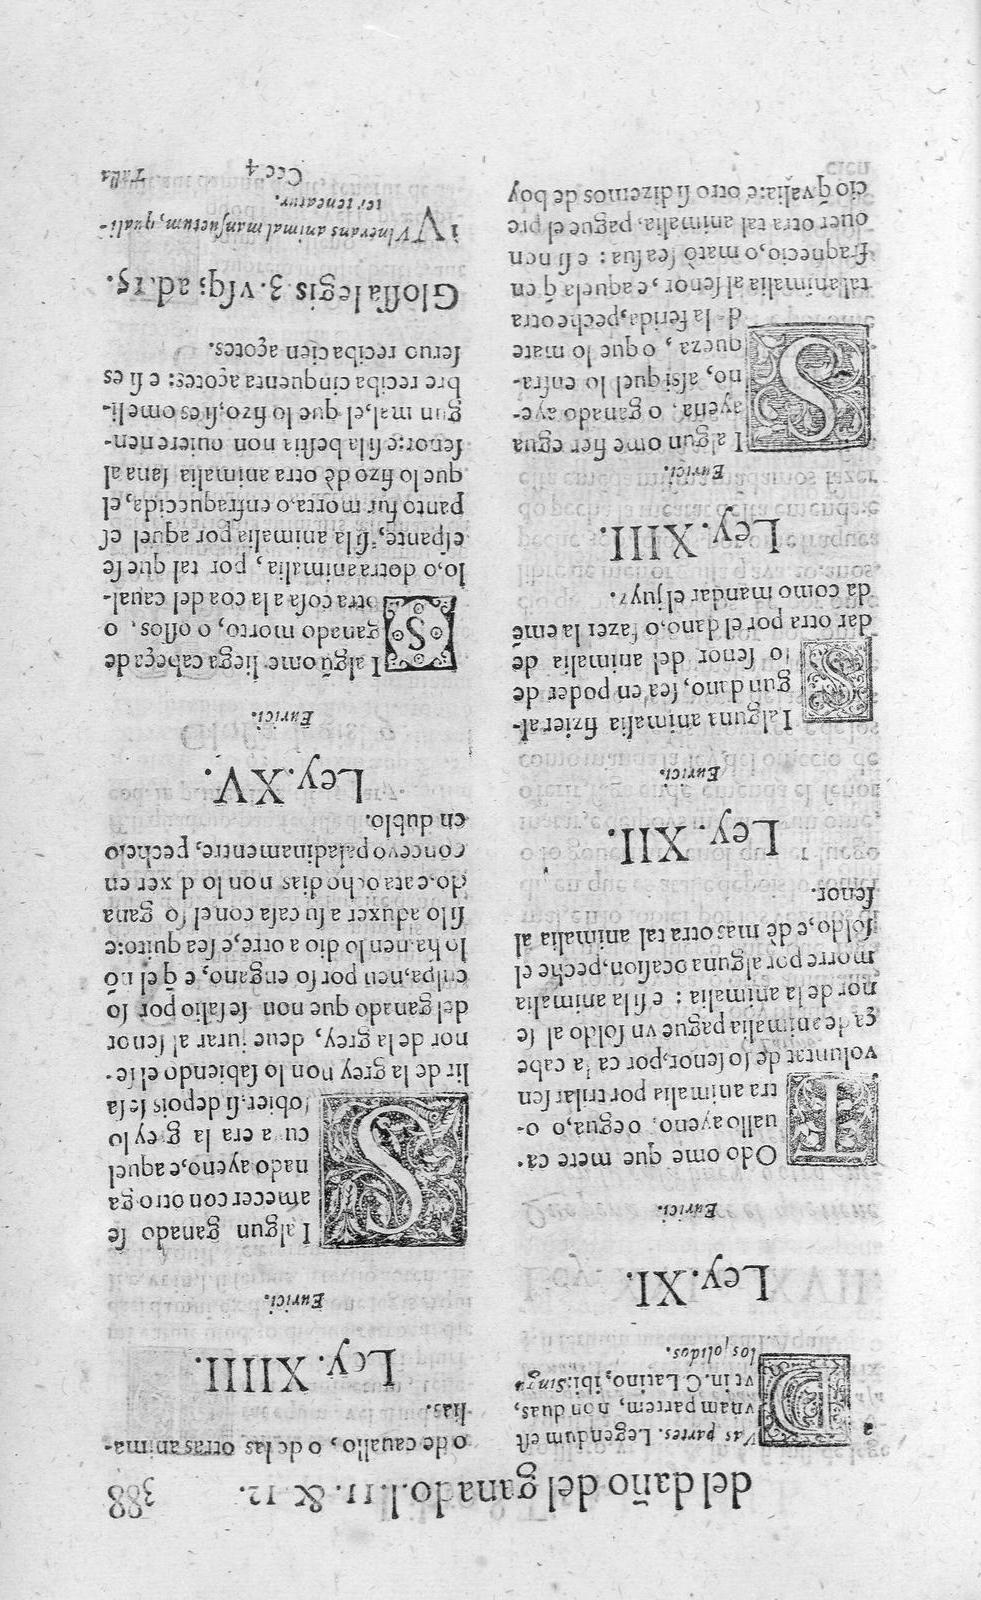 del daño del ganado.l.11.& 12. 388
a
DVas partes. Legendum eſt
vnam partem, non duas,
vt in. C. Latino, ibi: Singu
los ſolidos.
Ley. XI.
Eurici.
TOdo ome que mete ca-
uallo ayeno, o egua, o o-
tra animalia por trilar ſen
voluntat de ſo ſenor, por ca la cabe
ça de animalia pague vn ſoldo al ſe
nor de la animalia: e ſi la animalia
morre por alguna ocaſion, peche el
ſoldo, e dè mas otra tal animalia al
ſenor.
Ley. XII.
Eurici.
SI alguna animalia fizier al-
gun dano, ſea en poder de
lo ſenor del animalia de
dar otra por el dano, o fazer la eme
da como mandar el juyz.
Ley. XIII.
Eurici.
SI algun ome fier egua
ayena, o ganado aye-
no, aſsi quel lo enfra-
queza, o que lo mate
de la ferida, peche otra
tal animalia al ſenor, e aquela q̃ en
fraqnecio, o matò ſea ſua: e ſi non
ouer otra tal animalia, pague el pre
cio q̃ valia: e otro ſi dizemos de boy
o de cauallo, o de las otras anima-
lias.
Ley. XIIII.
Eurici.
SI algun ganado ſe
amecer con otro ga
nado ayeno, e aquel
cuya era la grey lo
ſobier. ſi depois ſe ſa
lir de la grey non lo ſabiendo el ſe-
nor de la grey, deue jurar al ſenor
del ganado que non ſe ſalio por ſo
culpa, nen por ſo engano, e q̃ el nõ
lo ha. nen lo dio a otre, e ſea quito: e
ſi lo aduxer a ſu caſa con el ſo gana
do. e ata ocho dias non lo dixer en
conceyo paladinamentre, pechelo
en dublo.
Ley. XV.
Eurici.
SI algũ ome liega cabeça de
ganado morto, o oſſos, o
otra coſa a la coa del caual-
lo, o dotra animalia, por tal que ſe
eſpante, ſi la animalia por aquel eſ
panto fur morta. o enfraquecida, el
que lo fizo dè otra animalia ſana al
ſenor: e ſi la beſtia non ouiere nen-
gun mal, el que lo fizo, ſi es ome li-
bre reciba cinquenta açotes: e ſi es
ſeruo reciba cien açotes.
Gloſſa legis 3. vſq; ad. 15.
VUlnerans animal manſuetum, quali-
ter teneatur.
Ccc 4